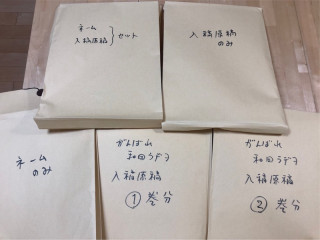 ネーム
入稿原稿 } セット
入稿原稿
のみ
ネーム
のみ
がんばれ
和田ラヂヲ
入稿原稿
① 巻分
がんばれ
和田ラヂヲ
入稿原稿
② 巻分